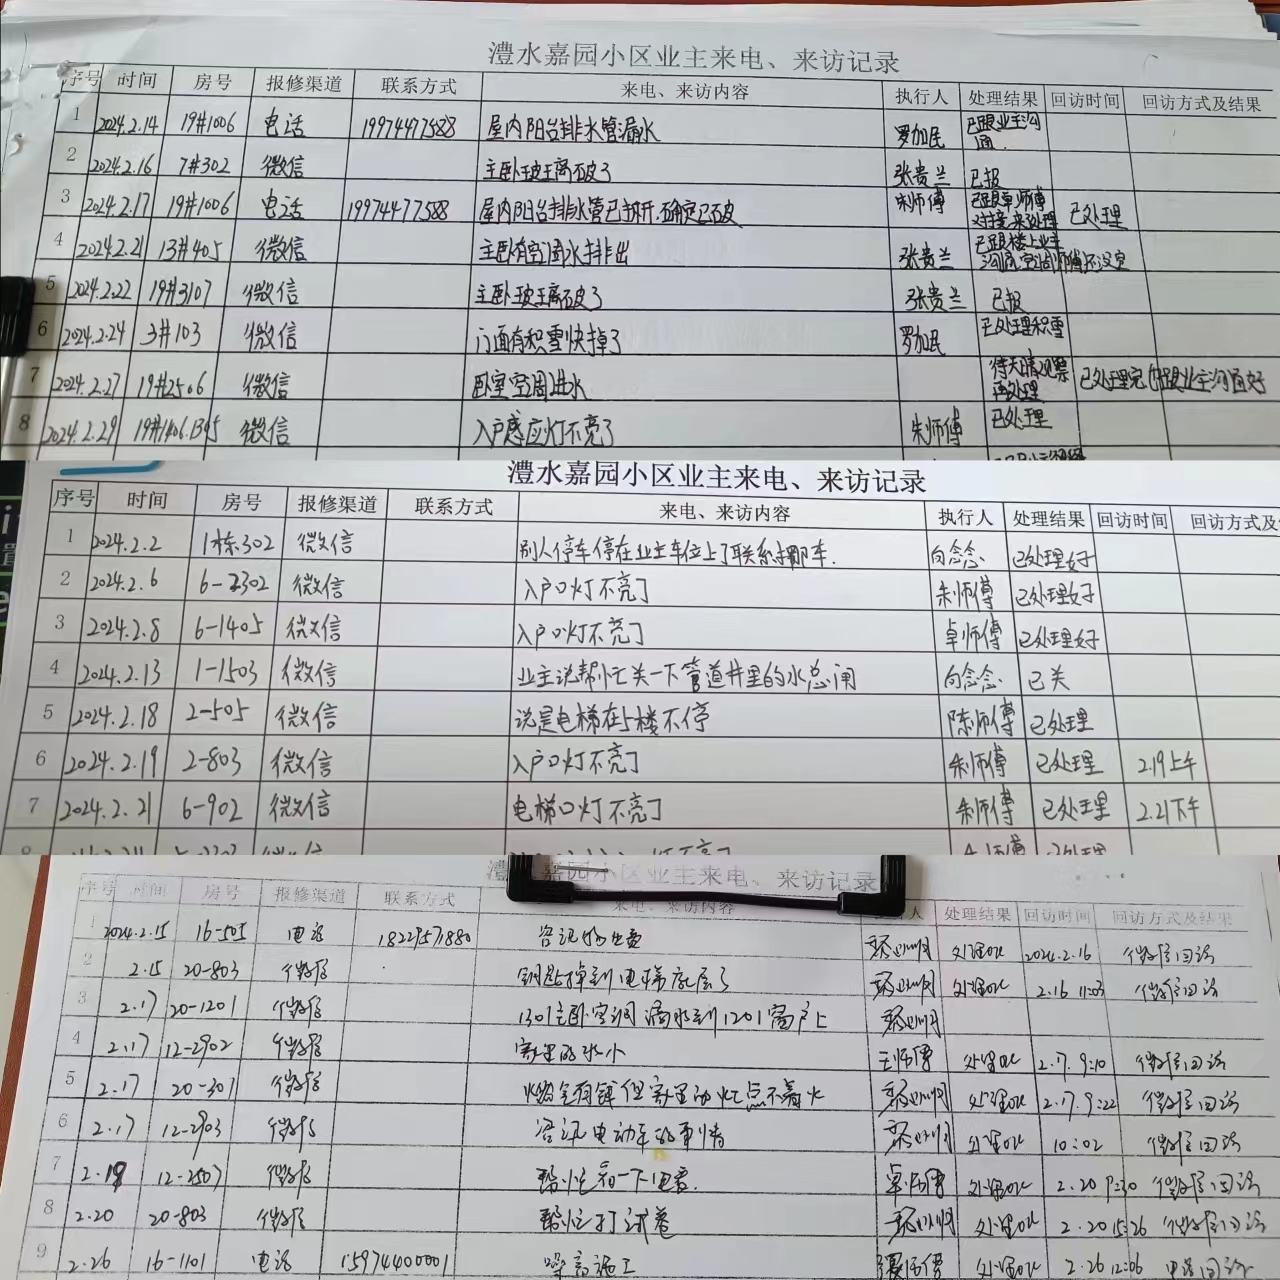 澧水嘉园小区业主来电、来访记录
序号 时间 房号 报修渠道 联系方式 来电、来访内容 执行人 处理结果 回访时间 回访方式及结果
1 2024.2.14 19#1006 电话 19974477588 屋内阳台排水管漏水 罗加民 已跟业主沟通
2 2024.2.16 7#302 微信 主卧玻璃破了 张贵兰 已报
3 2024.2.17 19#1006 电话 19974477588 屋内阳台排水管已拆开.确定已破 朱师傅 已跟卓师傅对接.来处理 已处理
4 2024.2.21 13#405 微信 主卧有空调水排出 张贵兰 已跟楼上业主沟流空调师傅还没空
5 2024.2.22 19#3107 微信 主卧玻璃破了 张贵兰 已报
6 2024.2.24 3#103 微信 门面有积雪快掉了 罗加民 已处理积雪
7 2024.2.27 19#2506 微信 卧室空调进水 待天晴观察再处理 已处理完 跟业主沟通好
8 2024.2.29 19#1406.1305 微信 入户感应灯不亮了 朱师傅 已处理
澧水嘉园小区业主来电、来访记录
序号 时间 房号 报修渠道 联系方式 来电、来访内容 执行人 处理结果 回访时间 回访方式及
1 2024.2.2 1栋302 微信 别人停车停在业主车位上了联系挪车. 向念念 已处理好
2 2024.2.6 6-2302 微信 入户口灯不亮了 朱师傅 已处理好
3 2024.2.8 6-1405 微信 入户口灯不亮了 卓师傅 已处理好
4 2024.2.13 1-1503 微信 业主说帮忙关一下管道井里的水总闸 向念念 已关
5 2024.2.18 2-505 微信 说是电梯在5楼不停 陈师傅 已处理
6 2024.2.19 2-803 微信 入户口灯不亮了 朱师傅 已处理 2.19上午
7 2024.2.21 6-902 微信 电梯口灯不亮了 朱师傅 已处理 2.21下午
澧水嘉园小区业主来电、来访记录
序号 时间 房号 报修渠道 联系方式 来电、来访内容 执行人 处理结果 回访时间 回访方式及结果
1 2024.2.15 16-505 电话 18229571880 咨讯物业费 处理ok 2024.2.16 微信回访
2 2.15 20-803 微信 钥匙掉到电梯底层了 处理ok 2.16 11:03 微信回访
3 2.17 20-1201 微信 1301主卧空调滴水到1201窗户上
4 2.17 12-2902 微信 家里的水小 王师傅 处理ok 2.17. 9:10 微信回访
5 2.17 20-301 微信 燃气有铺但家里的灶点不着火 处理ok 2.17. 9:22 微信回访
6 2.17 12-2903 微信 咨讯电动车的事情 处理ok 10:02 微信回访
7 2.18 12-2507 微信 帮忙看一下电表. 卓师傅 处理ok 2.20 9:30 微信回访
8 2.20 20-803 微信 帮忙打试卷 处理ok 2.20 15:26 微信回访
9 2.26 16-1101 电话 15974400001 噪音施工 处理ok 2.26 12:06 电话回访